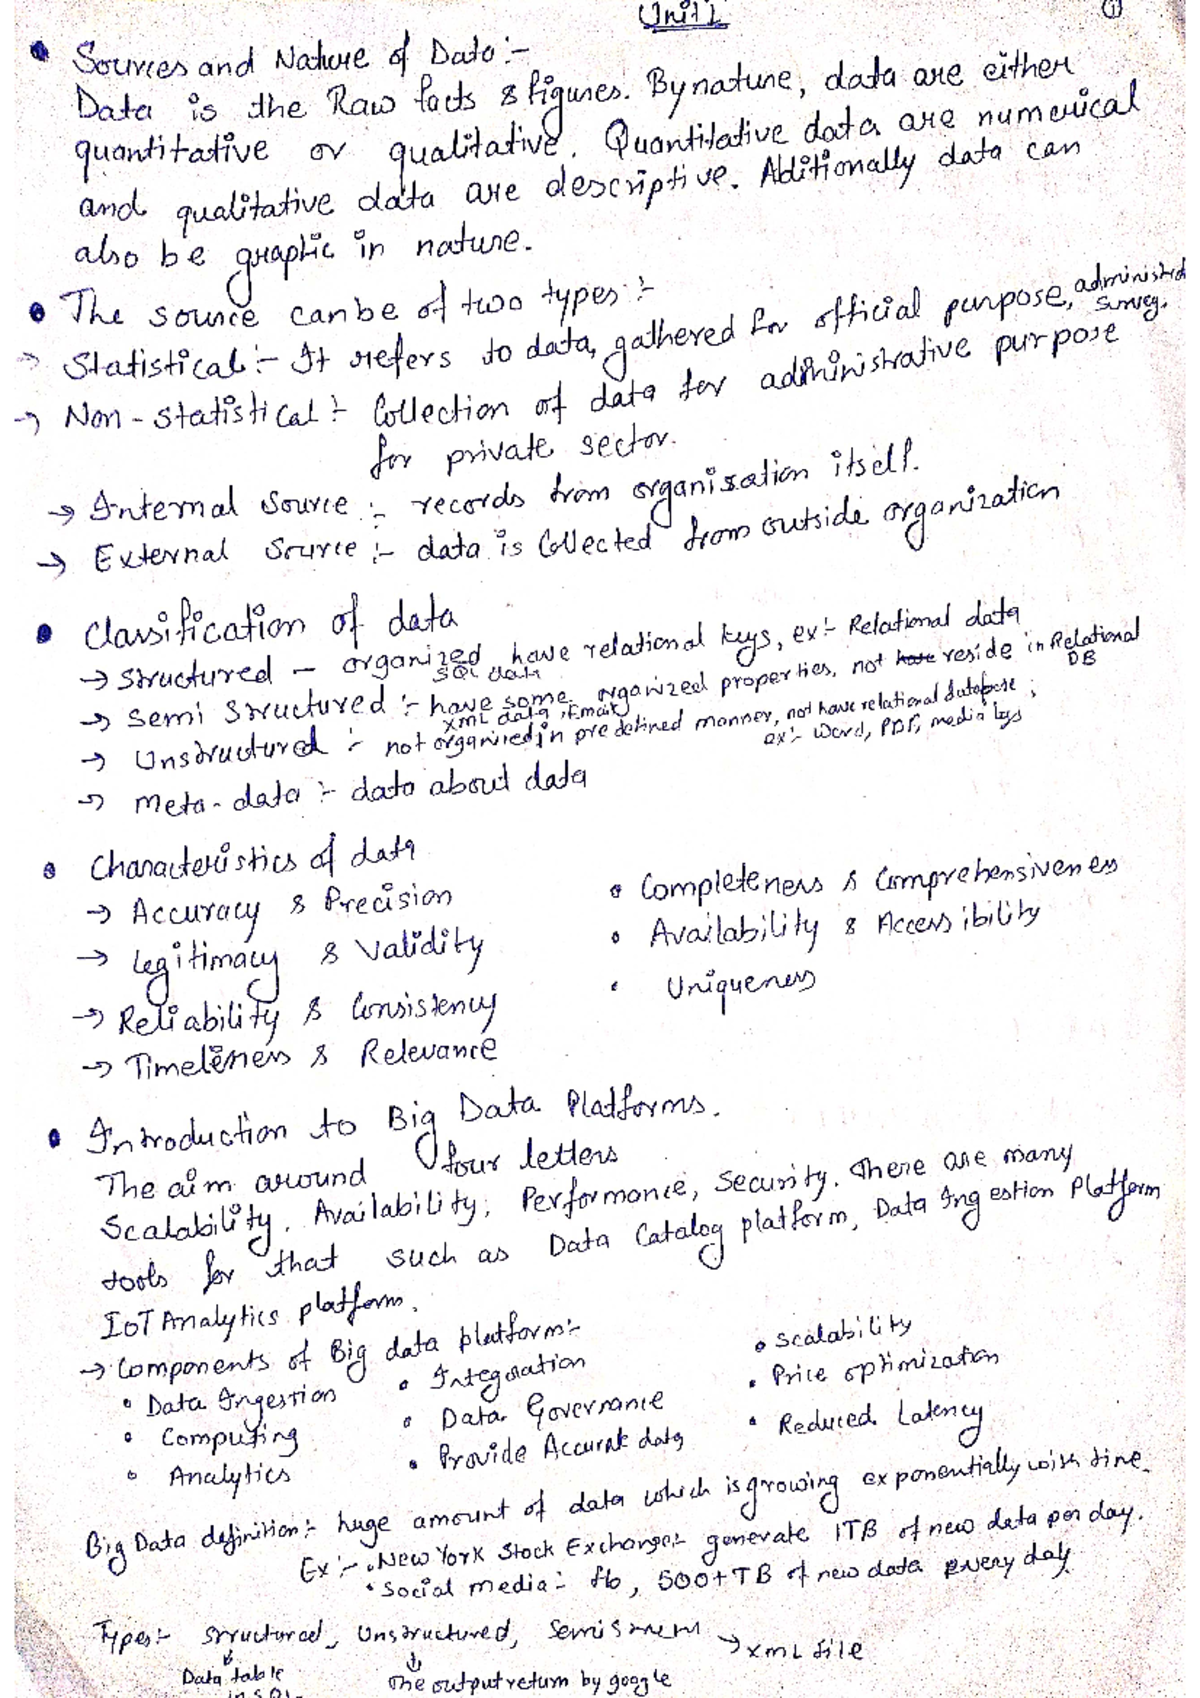 Unit 1
1
Sources and Nature of Data :-
Data is the Raw facts & figures. By nature, data are either
quantitative or qualitative. Quantitative data are numerical
and qualitative data are descriptive. Aditionally data can
also be graphic in nature.
The source can be of two types :-
Statistical :- It refers to data, gathered for official purpose, administed
survey.
→ Non-statistical :- Collection of data for administrative purpose
for private sector.
→ Internal Source :- records from organisation itself.
→ External Source :- data is Collected from outside organization
Classification of data
→ Structured - organized, have relational keys, ex :- Relational data
SQL data
→ Semi Structured :- have some organized properties, not reside in Relational
DB
XML data, Email
→ Unstructured :- not organised in pre defined manner, not have relational database ;
ex :- Word, PDF, media
→ Meta-data :- data about data
Characteristics of data
→ Accuracy & Precision
→ Legitimacy & Validity
→ Reliability & Consistency
→ Timeleness & Relevance
• Completeness & Comprehensiveness
• Availability & Accessibility
• Uniqueness
Introduction to Big Data Platforms.
The aim around four letters
Scalability, Availability, Performance, Security. There are many
tools for that such as Data Catalog platform, Data Ingestion Platform
IoT Analytics platform.
→ Components of Big data platform :-
• Data Ingestion
• Computing
• Analytics
• Integration
• Data Governance
• Provide Accurate data
• Scalability
• Price optimization
• Reduced Latency
Big Data definition :- huge amount of data which is growing exponentially with time.
Ex :- • New York Stock Exchange :- generate 1TB of new data per day.
• Social media :- fb, 500+TB of new data every day
Types :- Structured, Unstructured, → XML file
Data table
in SQL
The output return by google